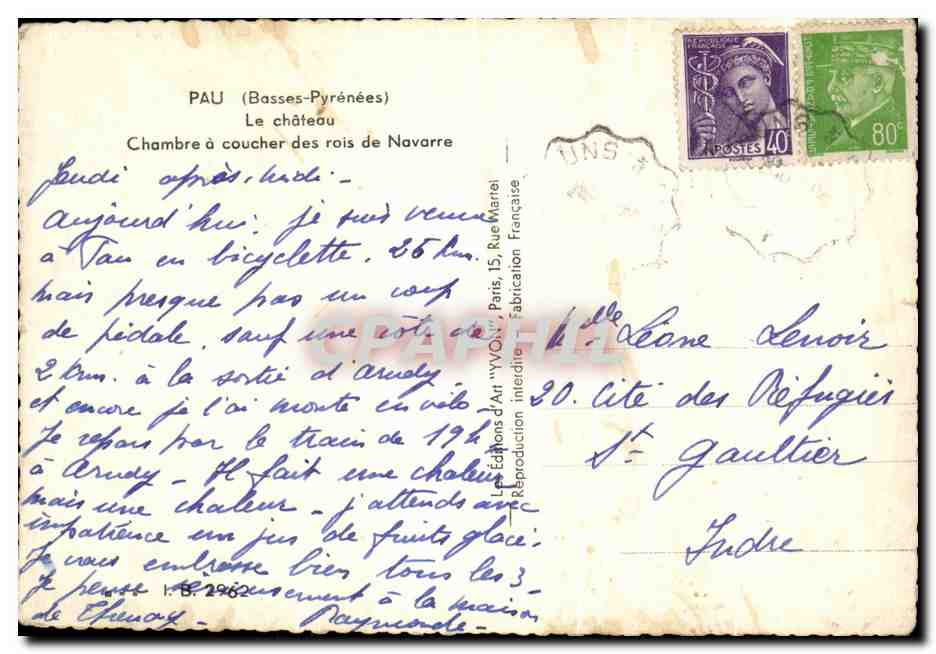 PAU (Basses-Pyrénées)
Le château
Chambre à coucher des rois de Navarre
Jeudi après-midi -
aujourd'hui, je suis venue
à Pau en bicyclette. 25 Km.
mais presque pas un coup
de pédale, sauf une côte de
2 Km. à la sortie d'Arudy
et encore je l'ai monté en vélo -
Je repars par le train de 19 h
à Arudy - Il fait une chaleur
mais une chaleur - j'attends avec
impatience un jus de fruits glacé.
Je vous embrasse bien tous les 3
Je pense sérieusement à la maison
de Thenay - Raymonde -
I. B. 2962
Les Editions d'Art "YVON", Paris, 15, Rue Martel
Reproduction interdite Fabrication Française
REPUBLIQUE
FRANÇAISE
POSTES 40c
80c
UNS
Melle Léone Lenoir
20. Cité des Réfugiés
St Gaultier
Indre
CPAPHIL